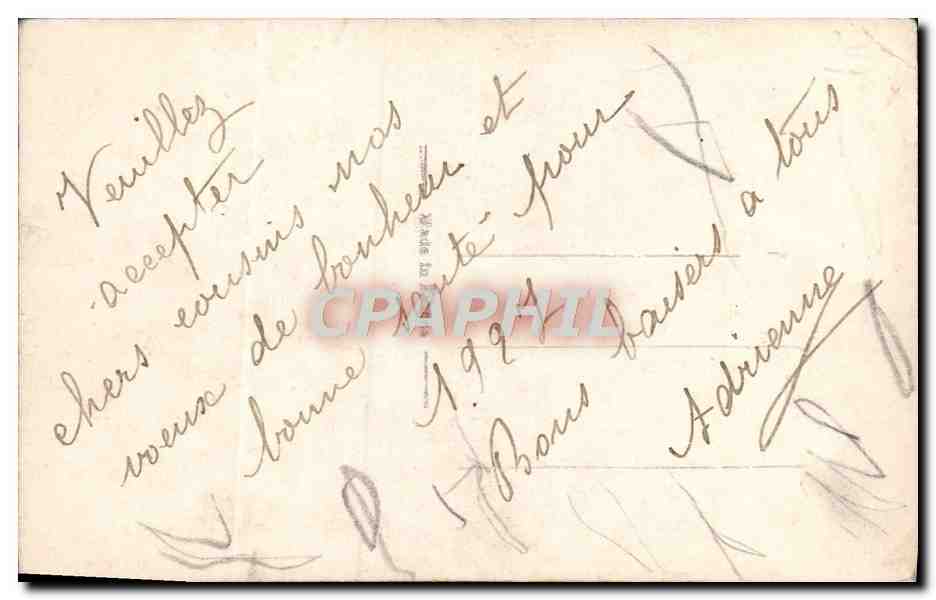 Veuillez
accepter
chers cousins nos
voeux de bonheur et
bonne santé pour
1927
Bons baisers a tous
Adrienne
Made in
CPAPHIL